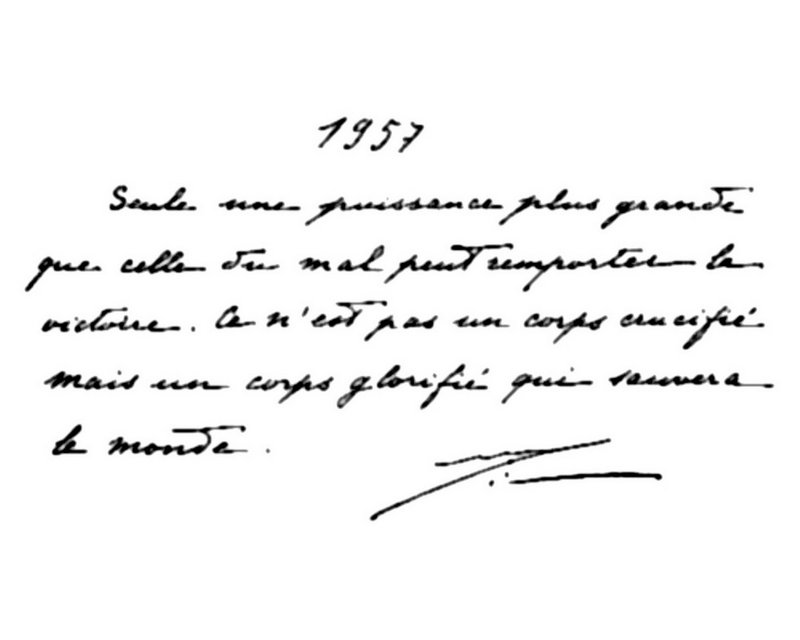 1957
Seule une puissance plus grande
que celle du mal peut remporter la
victoire. Ce n'est pas un corps crucifié
mais un corps glorifié qui sauvera
le monde.